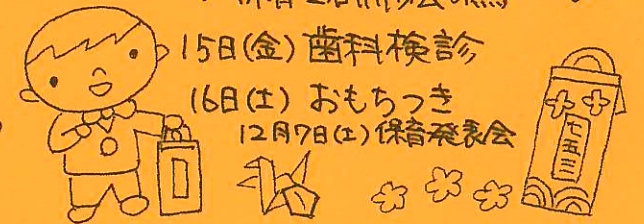 15日(金) 歯科検診
16日(土) おもちつき
12月7日(土) 保育発表会
七五三